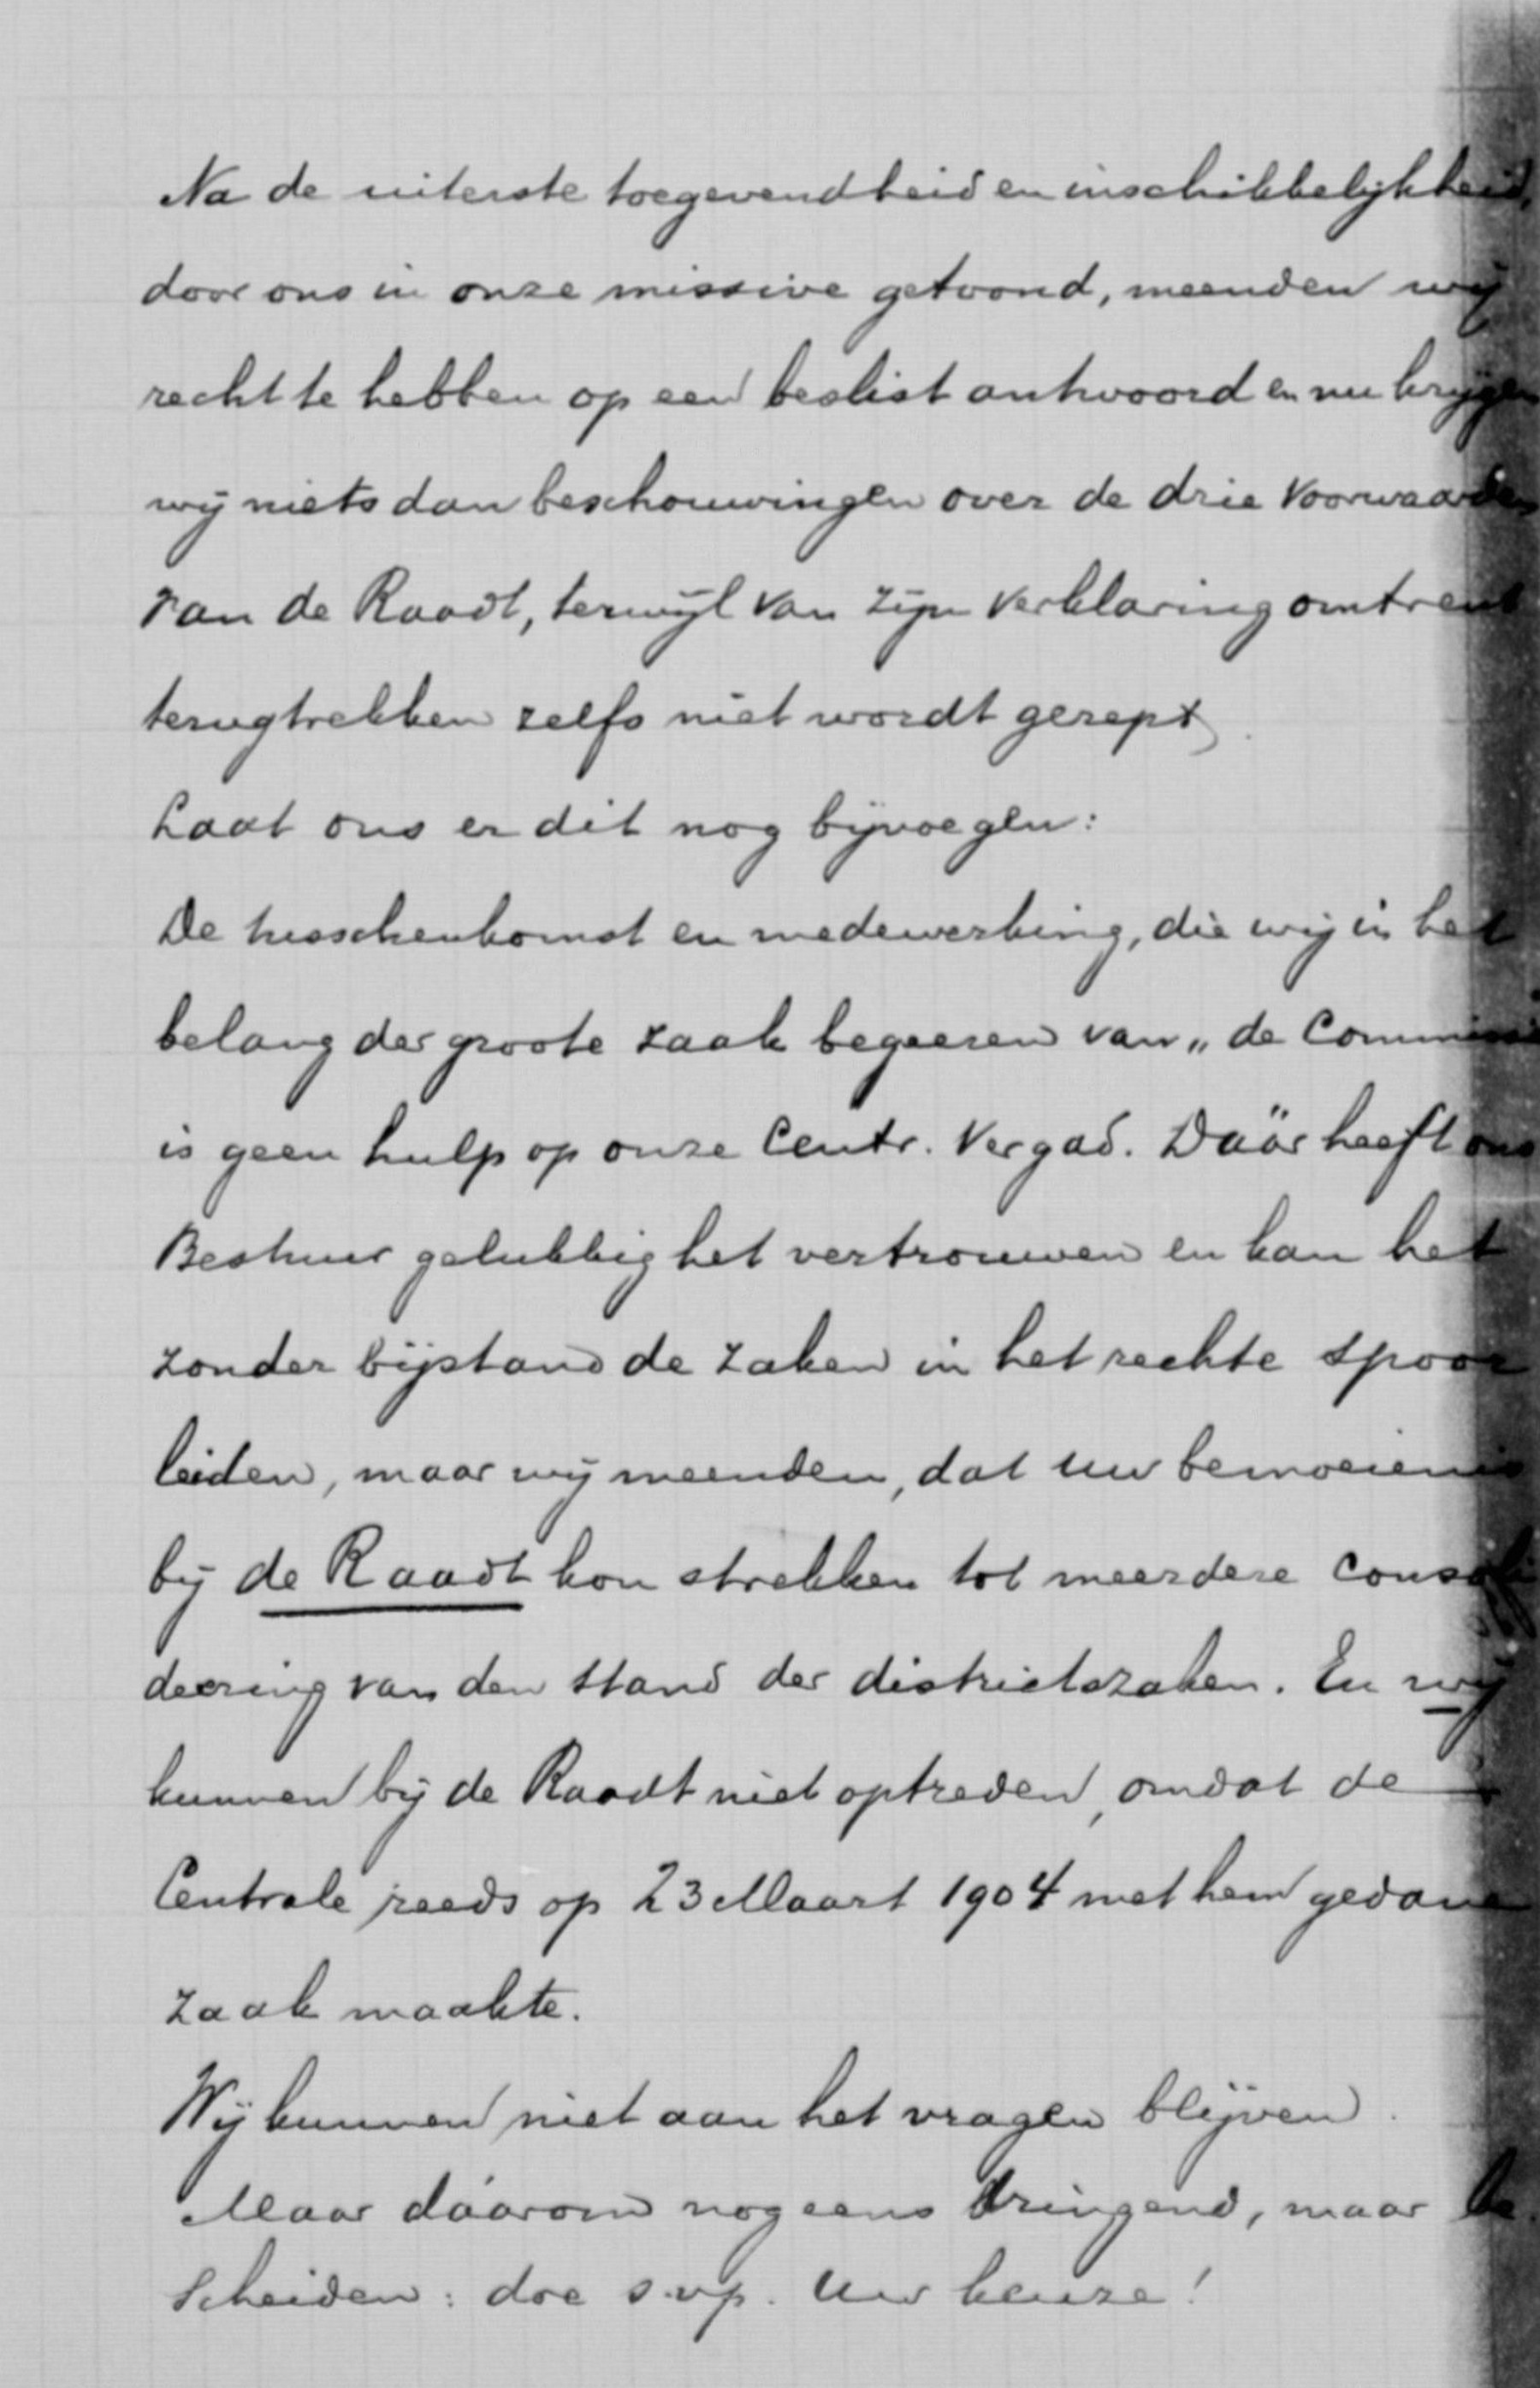 Na de uiterste toegevendheid en inschikkelijkheid,
door ons in onze missive getoond, meenden wij
recht te hebben op een beslist antwoord en nu krijgen
wij niets dan beschouwingen over de drie voorwaarden
van de Raadt, terwijl van zijn verklaring omtrent
terugtrekken zelfs niet wordt gerept.
Laat ons er dit nog bijvoegen:
De tusschenkomst en medewerking, die wij in het
belang der groote zaak begeeren van „de Commissie
is geen hulp op onze Centr. Vergad. Däär heeft ons
Bestuur gelukkig het vertrouwen en kan het
zonder bijstand de zaken in het rechte spoor
leiden, maar wij meenden, dat uw bemoeienis
bij de Raadt kon strekken tot meerdere consoli
deering van den stand der districtszaken. En wij
kunnen bij de Raadt niet optreden, omdat de
Centrale reeds op 23 Maart 1904 met hem gedane
zaak maakte.
Wij kunnen niet aan het vragen blijven.
Maar dáárom nog eens dringend, maar be.
scheiden: doe s.v.p. Uw keuze!